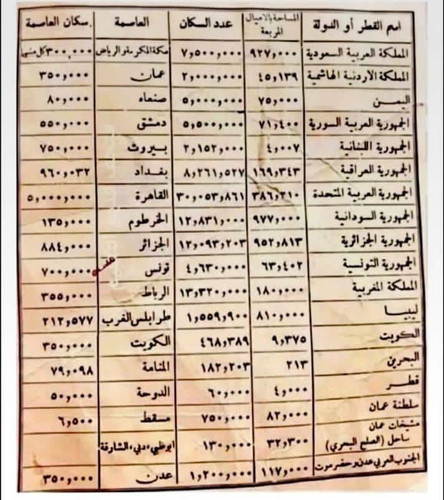 اسم القطر أو الدولة | المساحة بالأميال المربعة | عدد السكان | العاصمة | سكان العاصمة
المملكة العربية السعودية | ٩٢٧,٠٠٠ | ٧,٥٠٠,٠٠٠ | مكة المكرمة والرياض | ٣٠٠,٠٠٠ كل منهما
المملكة الأردنية الهاشمية | ٤٥,١٣٩ | ٢,٠٠٠,٠٠٠ | عمان | ٣٥٠,٠٠٠
اليمن | ٧٥,٠٠٠ | ٥,٠٠٠,٠٠٠ | صنعاء | ٨٠,٠٠٠
الجمهورية العربية السورية | ٧١,٤٠٠ | ٥,٠٠٠,٠٠٠ | دمشق | ٥٥٠,٠٠٠
الجمهورية اللبنانية | ٤,٠٠٧ | ٢,١٥٢,٠٠٠ | بيروت | ٧٥٠,٠٠٠
الجمهورية العراقية | ١٦٩,٣٤٣ | ٨,٢٦١,٥٢٧ | بغداد | ٩٦٠,٠٣٢
الجمهورية العربية المتحدة | ٣٨٦,٢١٠ | ٣٠,٠٥٣,٨٦١ | القاهرة | ٥,٠٠٠,٠٠٠
الجمهورية السودانية | ٩٧٧,٠٠٠ | ١٢,٨٣١,٠٠٠ | الخرطوم | ١٣٥,٠٠٠
الجمهورية الجزائرية | ٩٥٢,٨١٣ | ١٢,٠٩٣,٢٠٣ | الجزائر | ٨٨٤,٠٠٠
الجمهورية التونسية | ٦٣,٤٠٢ | ٤,٦٣٠,٠٠٠ | تونس | ٧٠٠,٠٠٠
المملكة المغربية | ١٨٠,٠٠٠ | ١٣,٣٢٠,٠٠٠ | الرباط | ٣٥٥,٠٠٠
ليبيا | ٨١٠,٠٠٠ | ١,٥٥٩,٩٠٠ | طرابلس الغرب | ٢١٢,٥٧٧
الكويت | ٩,٣٧٥ | ٤٦٨,٣٨٩ | الكويت | ٣٥٠,٠٠٠
البحرين | ٢١٣ | ١٨٢,٢٠٣ | المنامة | ٧٩,٠٩٨
قطر | ٤,٠٠٠ | ٦٠,٠٠٠ | الدوحة | ٥٠,٠٠٠
سلطنة عمان | ٨٢,٠٠٠ | ٧٥٠,٠٠٠ | مسقط | ٦,٥٠٠
مشيخات عمان
ساحل (الصلح البحري) | ٣٢,٣٠٠ | ١٣٠,٠٠٠ | ابوظبي، دبي، الشارقة
الجنوب العربي عدن وحضرموت | ١١٧,٠٠٠ | ١,٢٠٠,٠٠٠ | عدن | ٣٥٠,٠٠٠